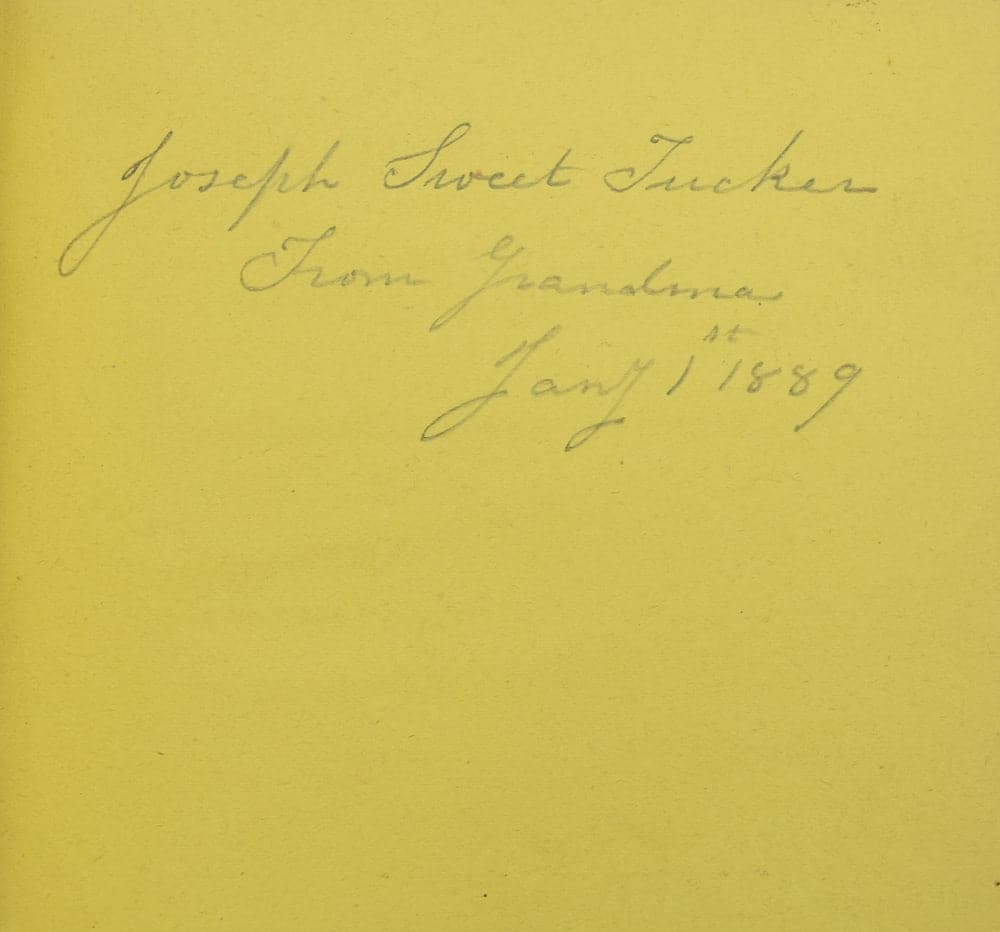 Joseph Sweet Tucker
From Grandma
Jany 1st 1889